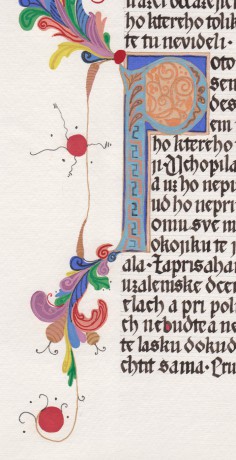 ho kterého tolik
te tu neviděli ·
P oto
sem
des
em
ho kterého
ji · Uchopila
a už ho nepu
ud ho nepri
omu své m
okojíku té j
ala · Zapřísahá
uzalémské dcer
elách a při polní
ch nebuďte a ne
te lásku dokud
chtít sama · Pru